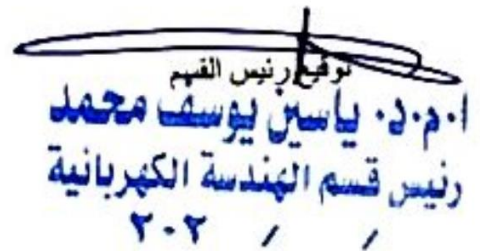 توقيع رئيس القسم
ا.م.د. ياسين يوسف محمد
رئيس قسم الهندسة الكهربائية
/ / ٢٠٢